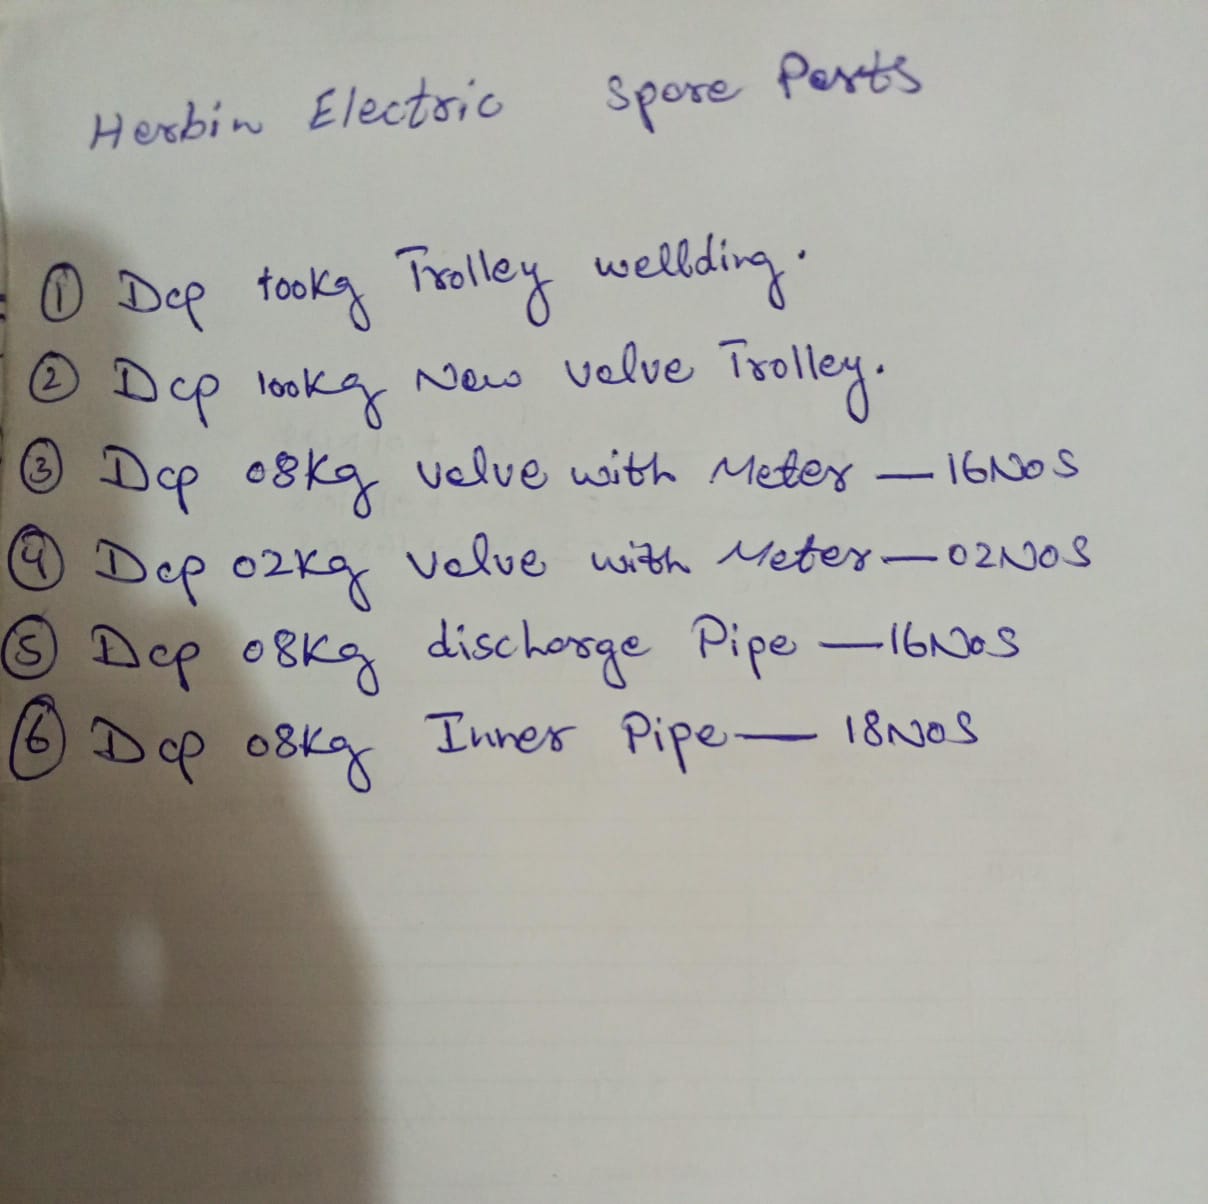 Herbin Electric Spare Parts
① Dcp 100Kg Trolley wellding.
② Dcp 100kg New valve Trolley.
③ Dcp 08Kg valve with Meter — 16NOS
④ Dcp 02Kg valve with Meter — 02NOS
⑤ Dcp 08Kg discharge Pipe — 16NOS
⑥ Dcp 08Kg Inner Pipe — 18NOS